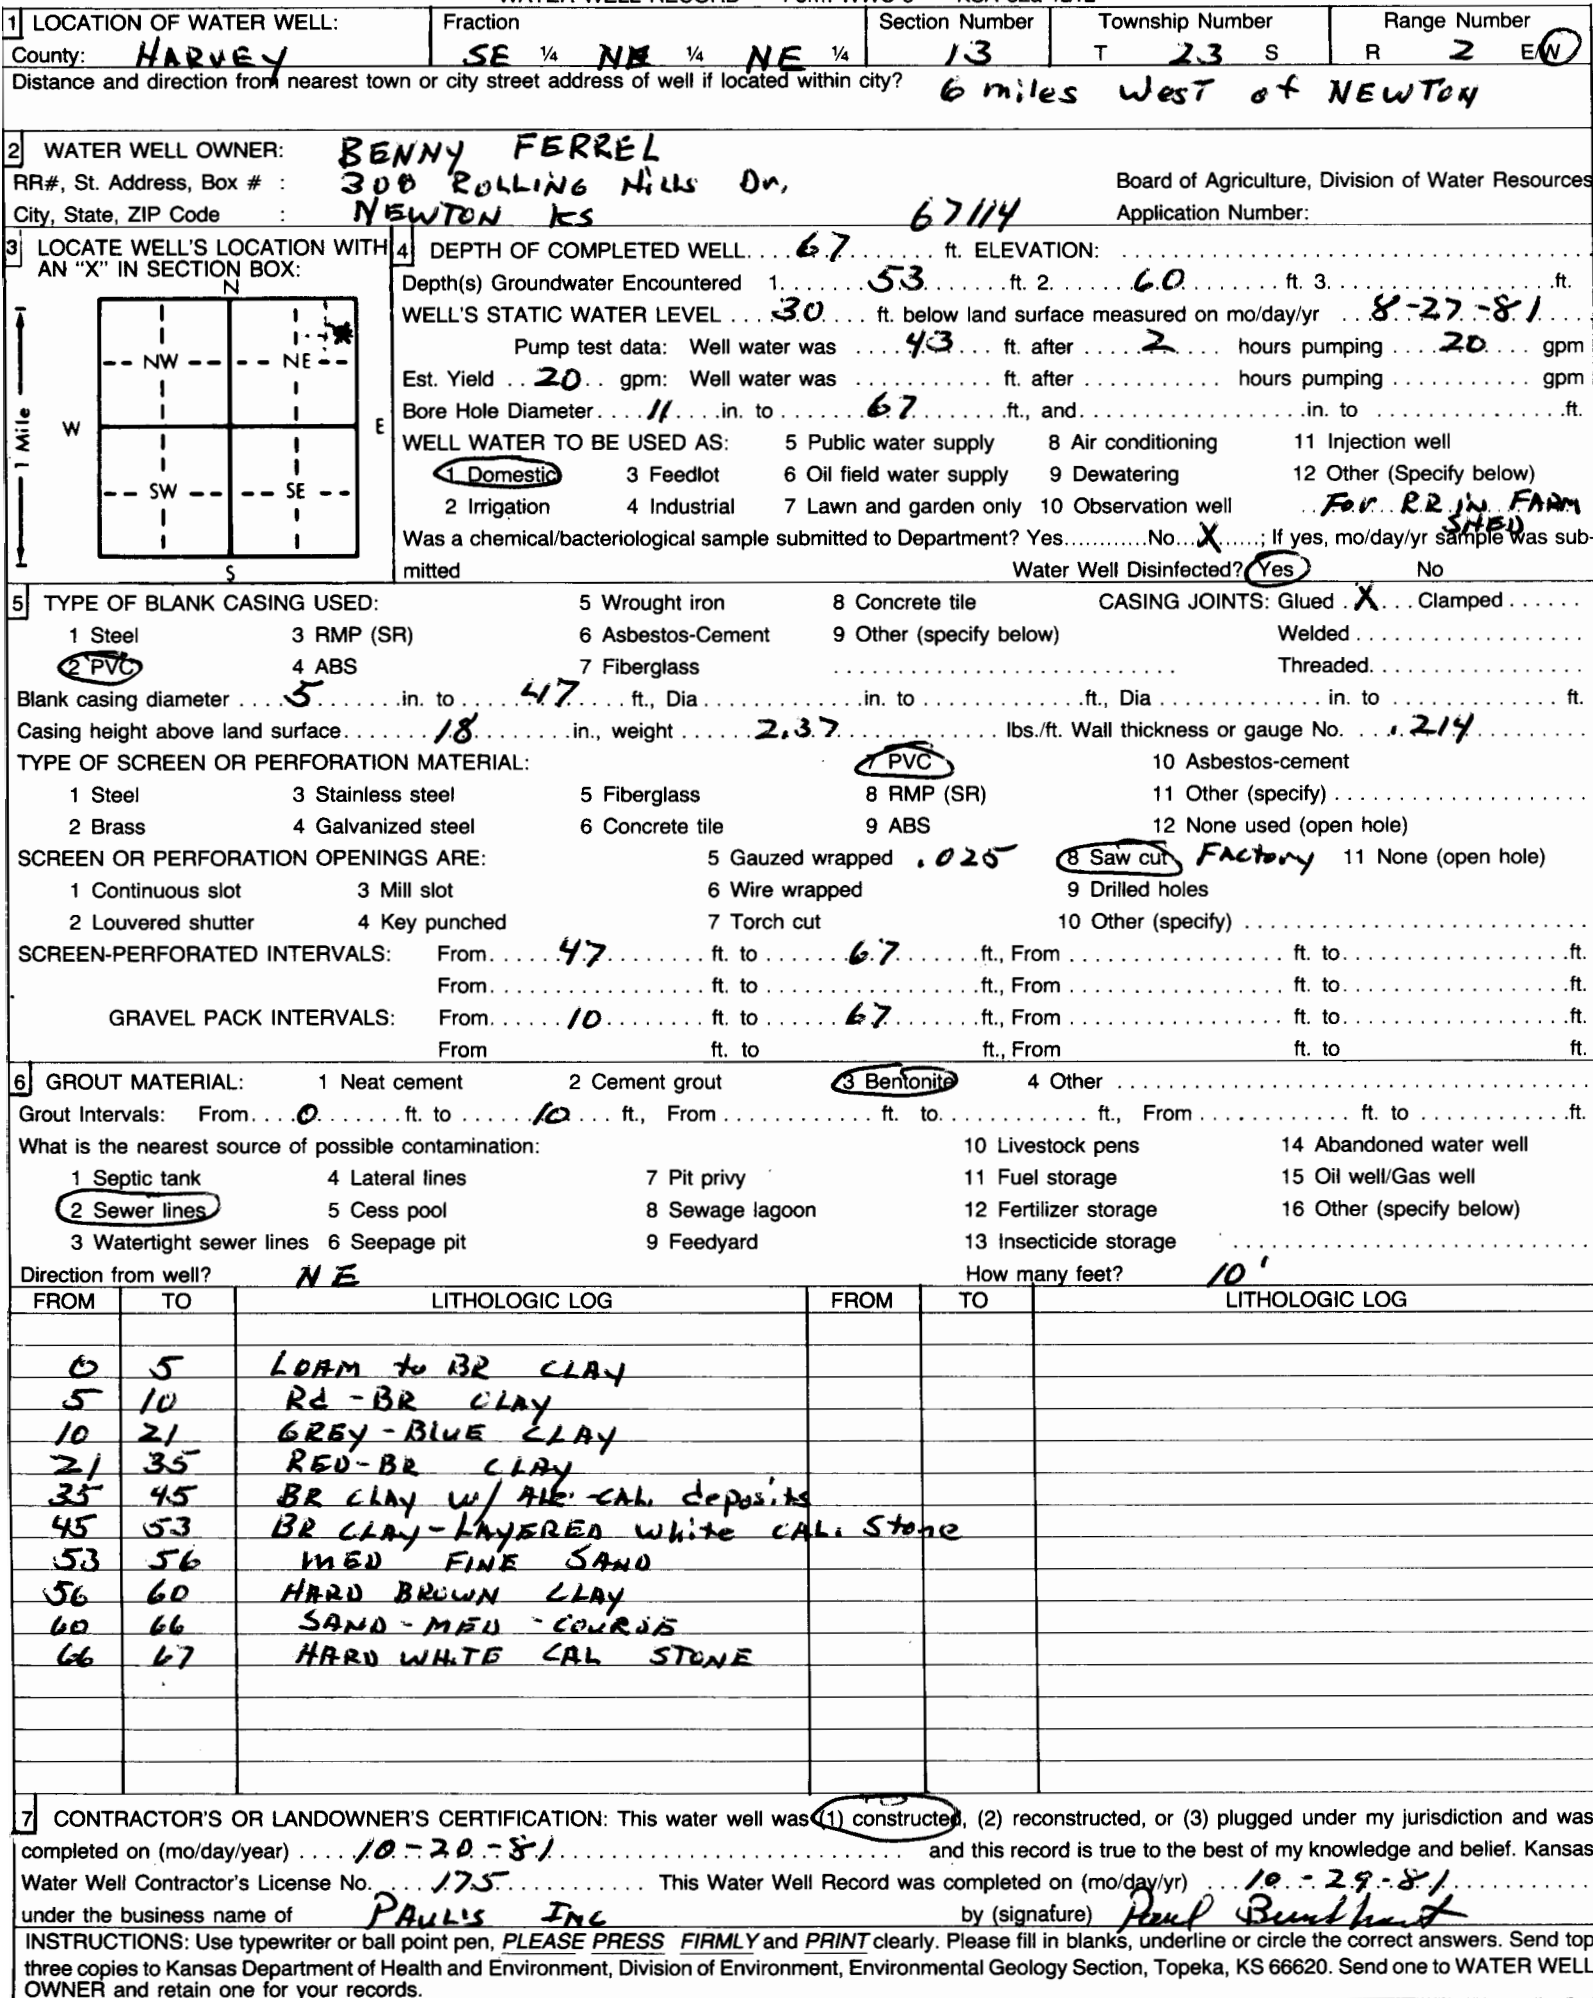 1 LOCATION OF WATER WELL: Fraction Section Number Township Number Range Number
County: HARVEY SE ¼ NE ¼ NE ¼ 13 T 23 S R 2 E/W
Distance and direction from nearest town or city street address of well if located within city? 6 miles West of NEWTON
2 WATER WELL OWNER: BENNY FERREL
RR#, St. Address, Box # : 300 ROLLING Hills Dr, Board of Agriculture, Division of Water Resources
City, State, ZIP Code : NEWTON KS 67114 Application Number:
3 LOCATE WELL'S LOCATION WITH AN "X" IN SECTION BOX:
N
NW NE
W E
SW SE
S
1 Mile
4 DEPTH OF COMPLETED WELL.... 67 ........ ft. ELEVATION: ........
Depth(s) Groundwater Encountered 1. 53 ft. 2. 60 ft. 3. ft.
WELL'S STATIC WATER LEVEL ... 30 .... ft. below land surface measured on mo/day/yr ... 8-27-81
Pump test data: Well water was .... 43 ... ft. after .... 2 .... hours pumping .... 20 .... gpm
Est. Yield .. 20 .. gpm: Well water was ............ ft. after ............ hours pumping ............ gpm
Bore Hole Diameter.... 11 ....in. to ...... 67 .......ft., and......................in. to ..................ft.
WELL WATER TO BE USED AS: 5 Public water supply 8 Air conditioning 11 Injection well
1 Domestic 3 Feedlot 6 Oil field water supply 9 Dewatering 12 Other (Specify below)
2 Irrigation 4 Industrial 7 Lawn and garden only 10 Observation well For RR IN FARM SHED
Was a chemical/bacteriological sample submitted to Department? Yes...........No...X.....; If yes, mo/day/yr sample was sub-
mitted Water Well Disinfected? Yes No
5 TYPE OF BLANK CASING USED: 5 Wrought iron 8 Concrete tile CASING JOINTS: Glued . X ... Clamped ......
1 Steel 3 RMP (SR) 6 Asbestos-Cement 9 Other (specify below) Welded ..............
2 PVC 4 ABS 7 Fiberglass .............................. Threaded..............
Blank casing diameter .... 5 .......in. to ...... 47 ..... ft., Dia ..............in. to ..............ft., Dia .............. in. to .............. ft.
Casing height above land surface....... 18 ........in., weight ...... 2.37 .............. lbs./ft. Wall thickness or gauge No. ... .214 ..........
TYPE OF SCREEN OR PERFORATION MATERIAL: 7 PVC 10 Asbestos-cement
1 Steel 3 Stainless steel 5 Fiberglass 8 RMP (SR) 11 Other (specify) ..............
2 Brass 4 Galvanized steel 6 Concrete tile 9 ABS 12 None used (open hole)
SCREEN OR PERFORATION OPENINGS ARE: 5 Gauzed wrapped .025 8 Saw cut Factory 11 None (open hole)
1 Continuous slot 3 Mill slot 6 Wire wrapped 9 Drilled holes
2 Louvered shutter 4 Key punched 7 Torch cut 10 Other (specify) ..............
SCREEN-PERFORATED INTERVALS: From...... 47 ........ ft. to ....... 67 .......ft., From .............. ft. to..............ft.
From.............. ft. to ..............ft., From .............. ft. to..............ft.
GRAVEL PACK INTERVALS: From...... 10 ........ ft. to ....... 67 .......ft., From .............. ft. to..............ft.
From ft. to ft., From ft. to ft.
6 GROUT MATERIAL: 1 Neat cement 2 Cement grout 3 Bentonite 4 Other ..............
Grout Intervals: From.... 0 .......ft. to ...... 10 ... ft., From .............. ft. to.............. ft., From .............. ft. to ..............ft.
What is the nearest source of possible contamination: 10 Livestock pens 14 Abandoned water well
1 Septic tank 4 Lateral lines 7 Pit privy 11 Fuel storage 15 Oil well/Gas well
2 Sewer lines 5 Cess pool 8 Sewage lagoon 12 Fertilizer storage 16 Other (specify below)
3 Watertight sewer lines 6 Seepage pit 9 Feedyard 13 Insecticide storage ..............
Direction from well? NE How many feet? 10'
FROM TO LITHOLOGIC LOG FROM TO LITHOLOGIC LOG
0 5 LOAM to BR CLAY
5 10 Rd-BR CLAY
10 21 GREY-BLUE CLAY
21 35 RED-BR CLAY
35 45 BR CLAY w/ CAL. deposits
45 53 BR CLAY-LAYERED white CAL. Stone
53 56 MED FINE SAND
56 60 HARD BROWN CLAY
60 66 SAND-MED-COURSE
66 67 HARD WHITE CAL STONE
7 CONTRACTOR'S OR LANDOWNER'S CERTIFICATION: This water well was (1) constructed, (2) reconstructed, or (3) plugged under my jurisdiction and was
completed on (mo/day/year) .... 10-20-81 .............. and this record is true to the best of my knowledge and belief. Kansas
Water Well Contractor's License No. ... 175 ............ This Water Well Record was completed on (mo/day/yr) ... 10-29-81 ..........
under the business name of PAUL'S INC by (signature) Paul
INSTRUCTIONS: Use typewriter or ball point pen, PLEASE PRESS FIRMLY and PRINT clearly. Please fill in blanks, underline or circle the correct answers. Send top
three copies to Kansas Department of Health and Environment, Division of Environment, Environmental Geology Section, Topeka, KS 66620. Send one to WATER WELL
OWNER and retain one for your records.